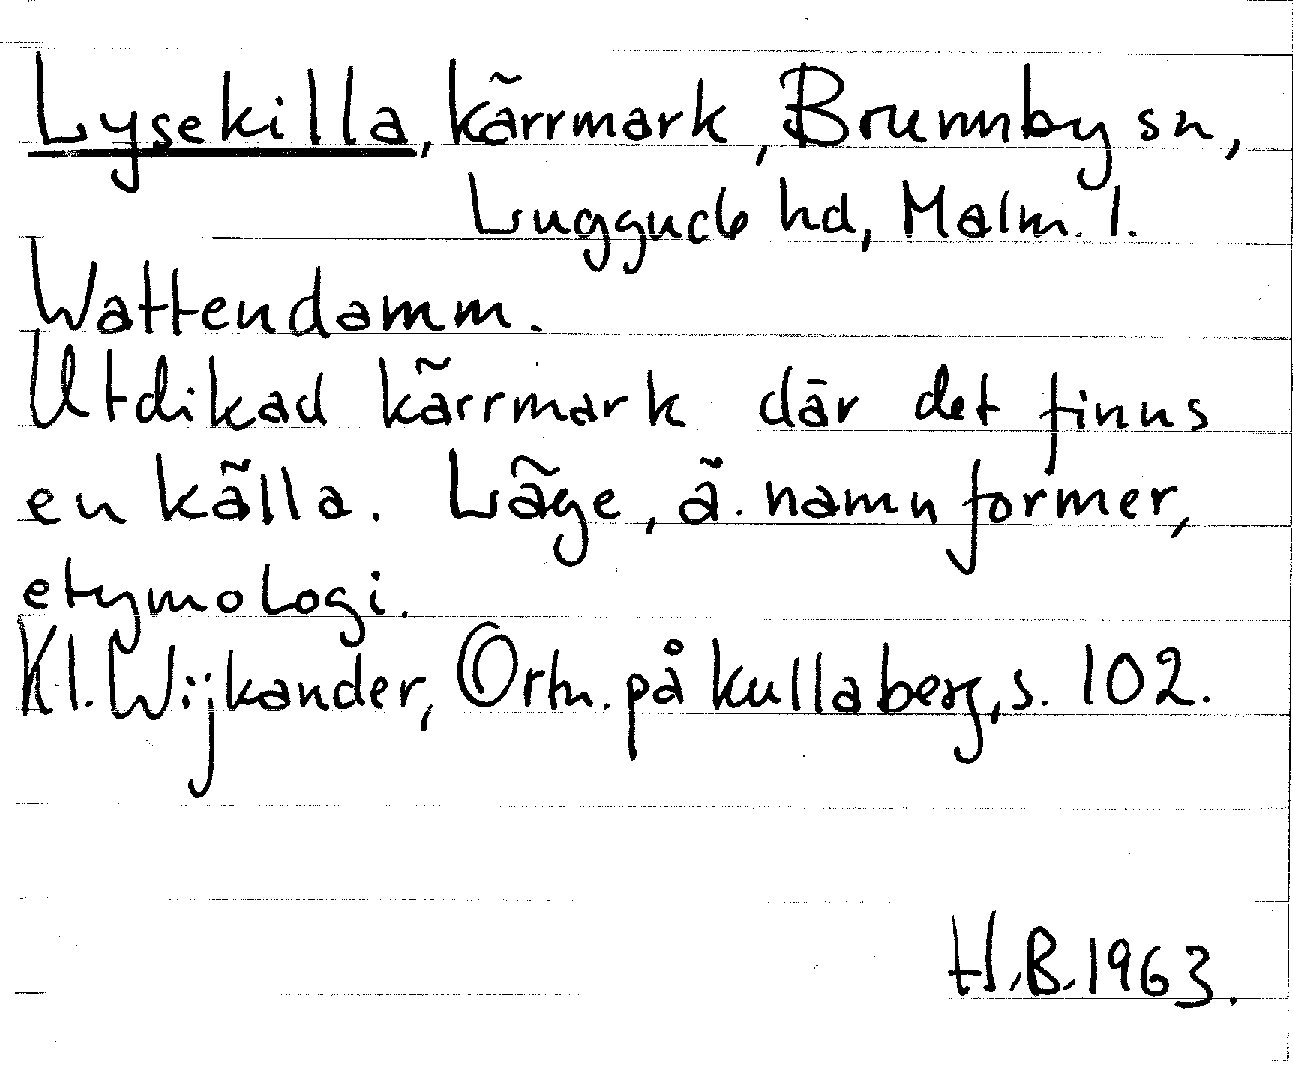 Lysekilla, kärrmark, Brunnby sn,
Luggude hd, Malm. l.
Wattendamm.
Utdikad kärrmark där det finns
en källa. Läge, ä. namnformer,
etymologi.
Kl. Wijkander, Ortn. på Kullaberg, s. 102.
H.B. 1963.